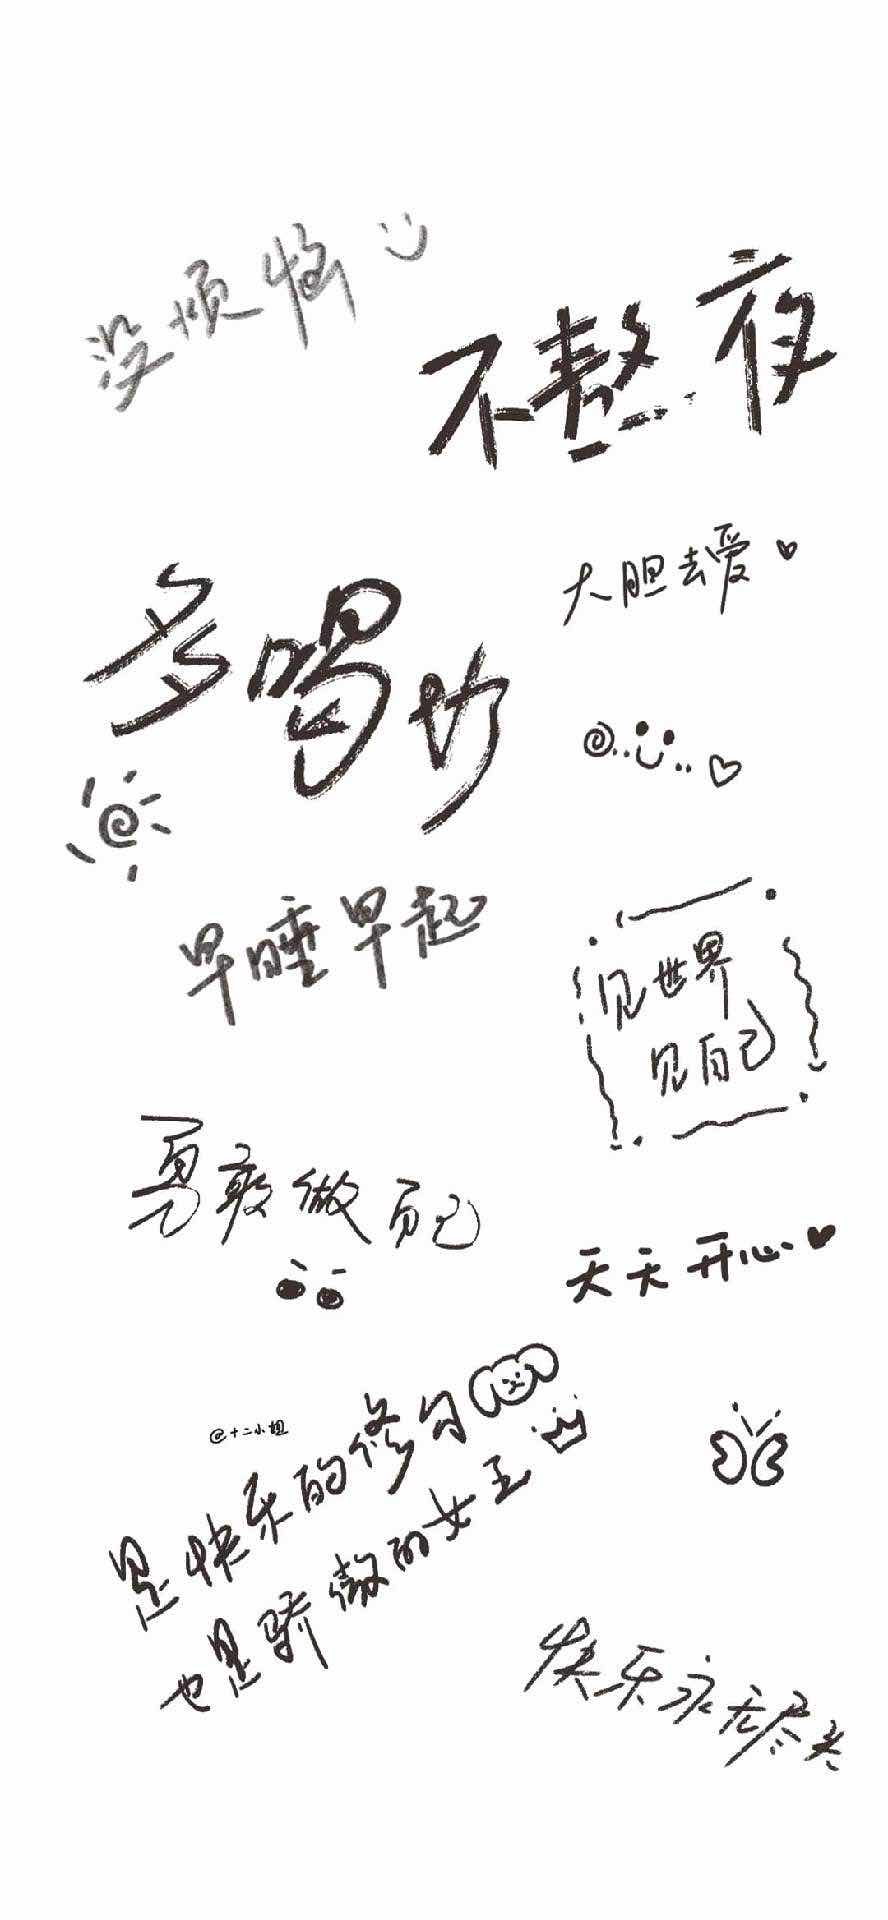 没烦恼
不熬夜
大胆去爱
多喝水
早睡早起
见世界
见自己
勇敢做自己
天天开心
@十二小姐
是快乐的修勾
也是骄傲的女王
快乐永无尽头